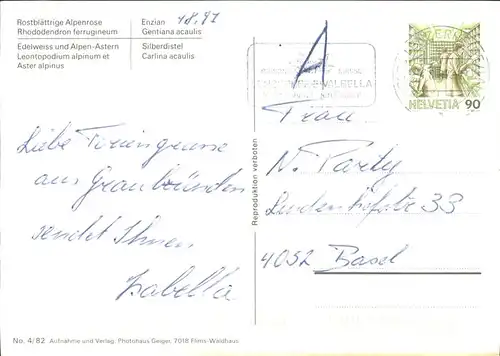 Rostblättrige Alpenrose
Rhododendron ferrugineum
Edelweiss und Alpen-Astern
Leontopodium alpinum et
Aster alpinus
Enzian
Gentiana acaulis
Silberdistel
Carlina acaulis
A
HELVETIA 90
Liebe Feriengrüsse
aus Graubünden
sendet Ihnen
Isabella
Reproduktion verboten
Frau
N.
Lindenhofstr. 33
4052 Basel
No. 4/82 Aufnahme und Verlag, Photohaus Geiger, 7018 Flims-Waldhaus